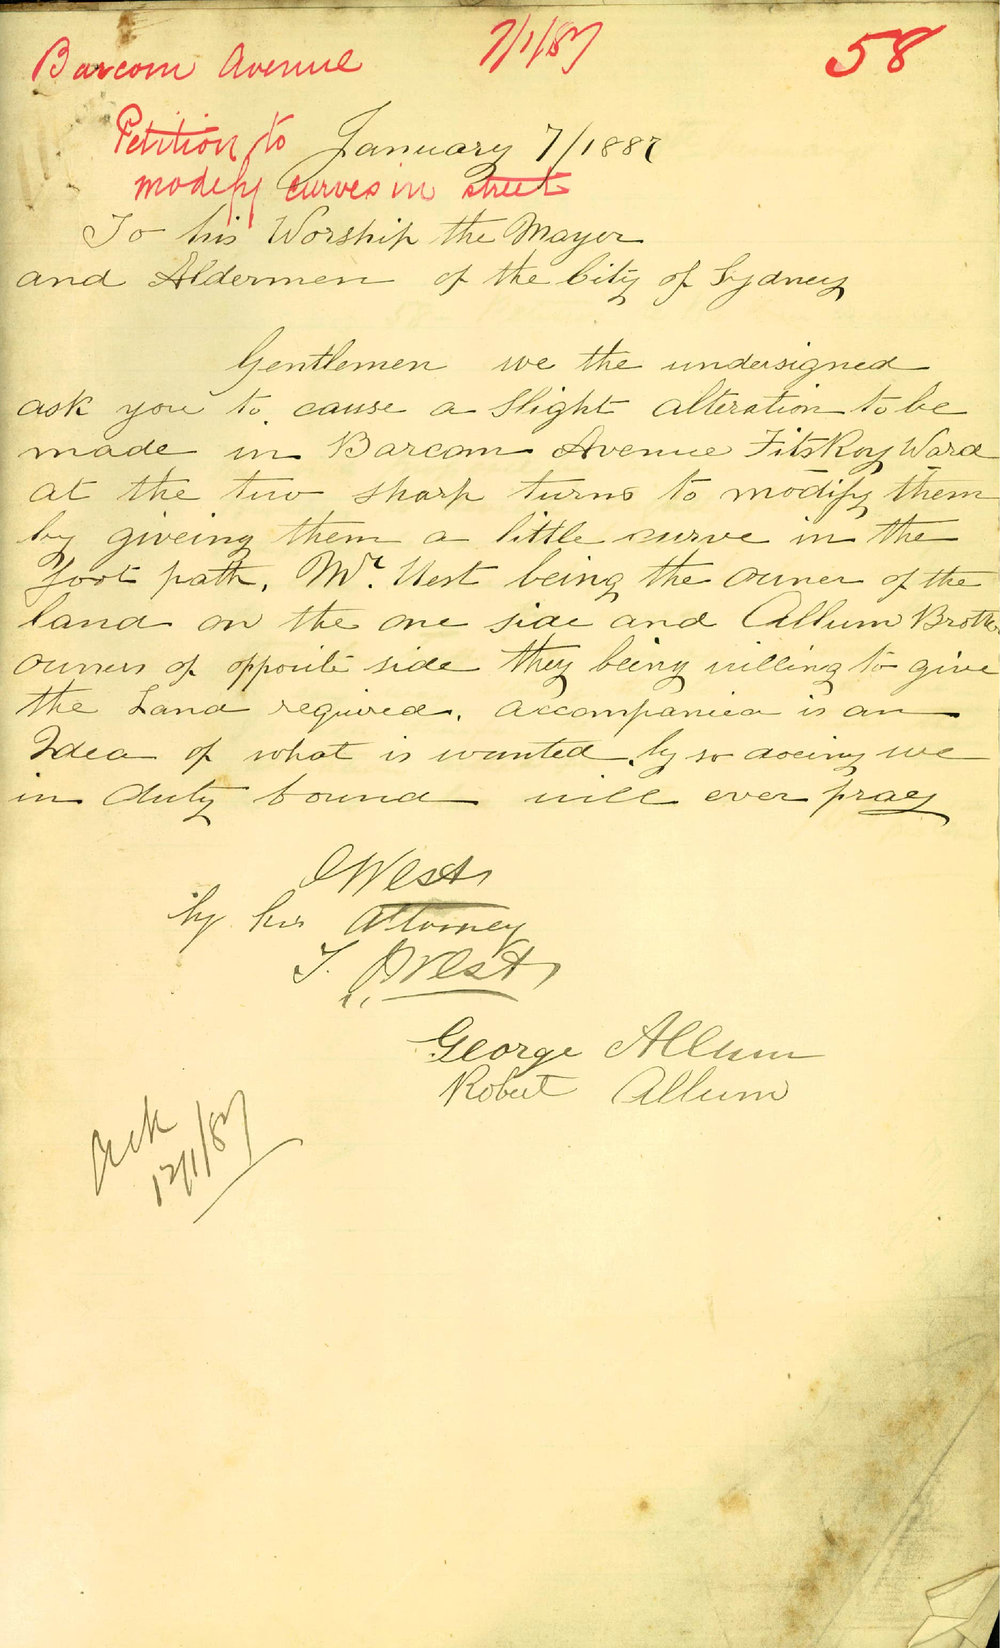 Barcom Avenue 7/1/87 58
Petition to
January 7/1887
modify curves in street
To his Worship the Mayor
and Aldermen of the City of Sydney
Gentlemen we the undersigned
ask you to cause a slight alteration to be
made in Barcom Avenue FitsRoy Ward
at the two sharp turns to modify them
by giveing them a little curve in the
foot path, Mr. West being the owner of the
land on the one side and Allum Broth
owners of opposite side they being willing to give
the Land required. accompanied is an
Idea of what is wanted by so doeing we
in duty bound will ever pray
West
by his Attorney
T. West
George Allum
Robert Allum
Ack
12/1/87